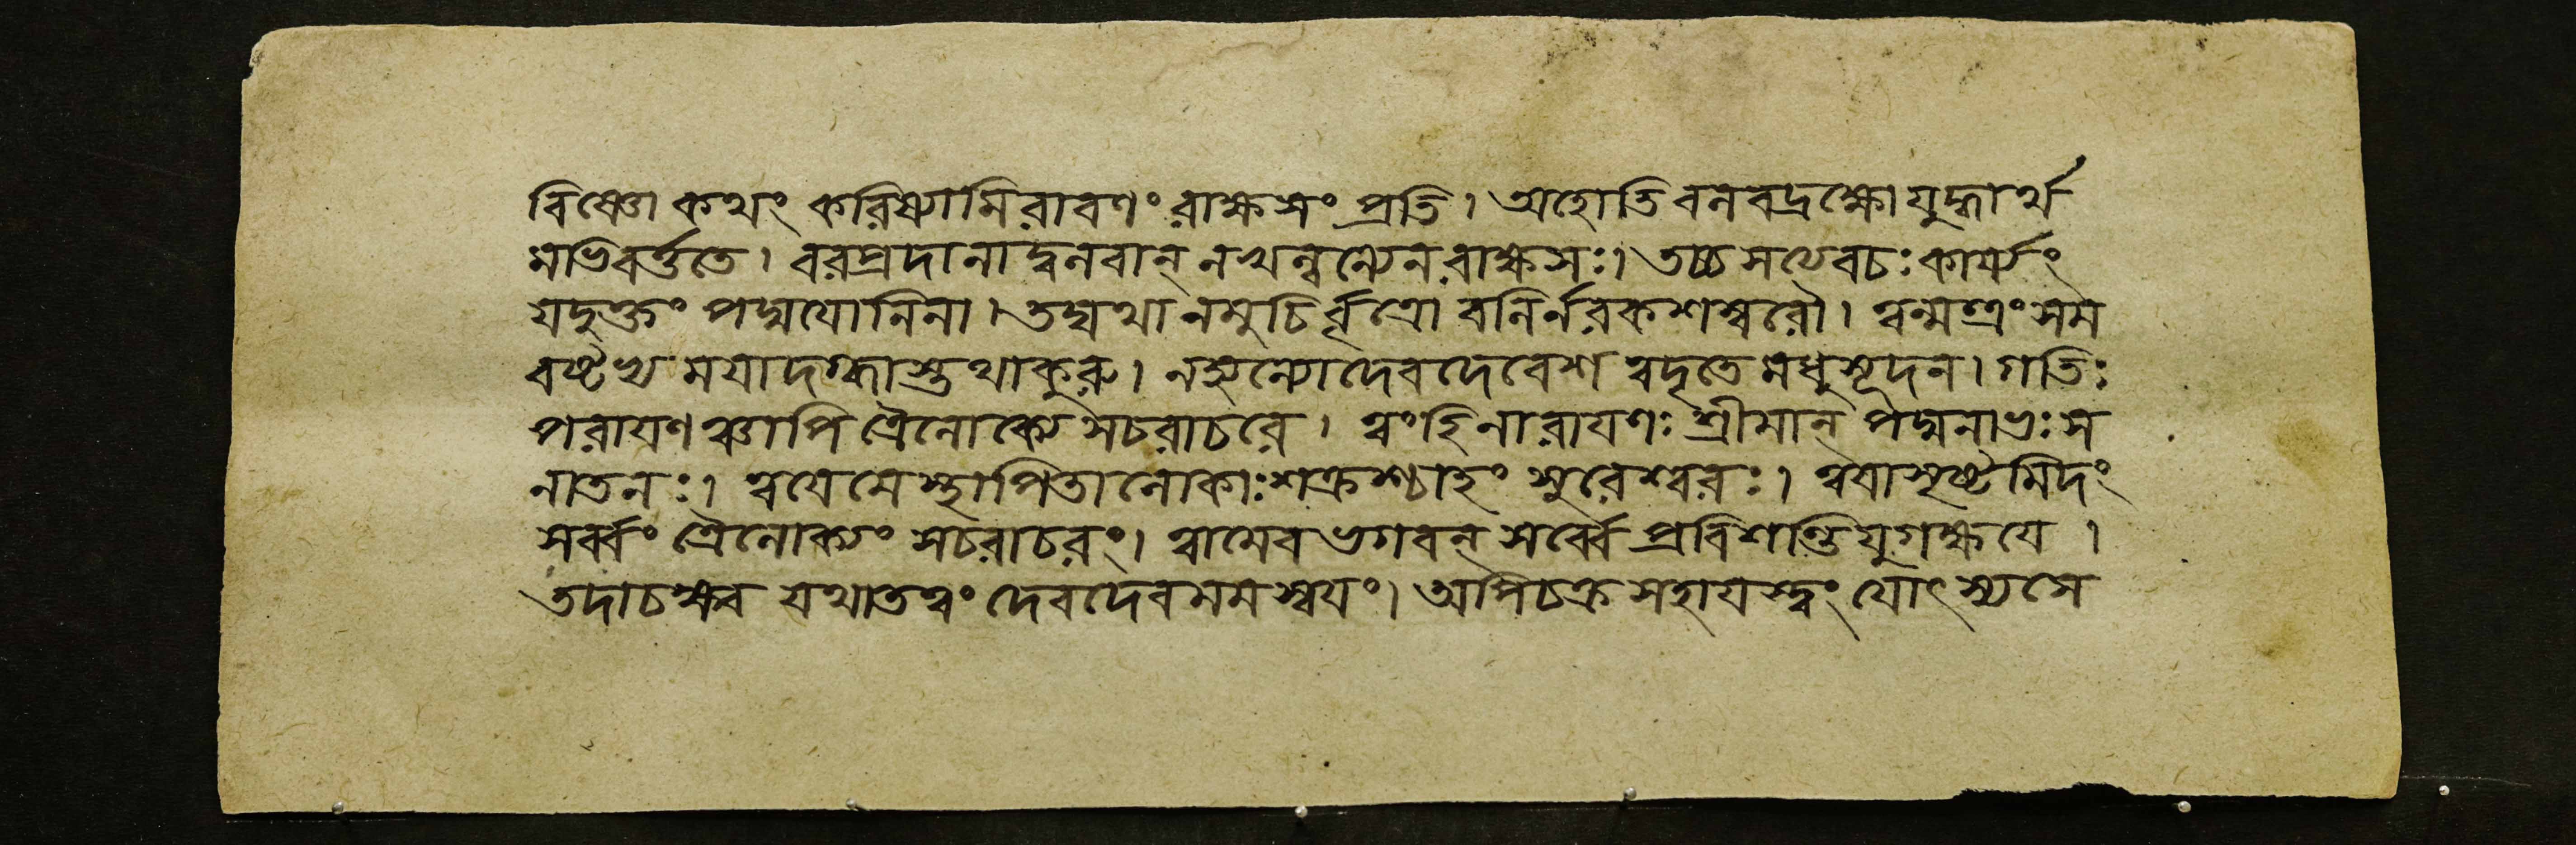 বিষ্ণো কথং করিষ্যামি রাবণং রাক্ষসং প্রতি। অহোতিবলবদ্রক্ষো যুদ্ধার্থ
মভিবর্ত্ততে। বরপ্রদানাদ্বলবান্ ন খল্বন্যেন রাক্ষসঃ। তচ্চ সত্যং বচঃ কার্য্যং
যদুক্তং পদ্মযোনিনা। তদ্যথা নমুচির্বৃত্রো বলির্নরকশম্বরৌ। ত্বন্মত্রং সম
বষ্টভ্য ময়া দগ্ধাস্তথা কুরু। নহ্যন্যো দেবদেবেশ ত্বদৃতে মধুসূদন। গতিঃ
পরায়ণঞ্চাপি ত্রৈলোক্যে সচরাচরে। ত্বং হি নারায়ণঃ শ্রীমান্ পদ্মনাভঃ স
নাতনঃ। ত্বয়েমে স্থাপিতা লোকাঃ শক্রশ্চাহং সুরেশ্বরঃ। ত্বয়া সৃষ্টমিদং
সর্ব্বং ত্রৈলোক্যং সচরাচরং। ত্বামেব ভগবন্ সর্ব্বে প্রবিশন্তি যুগক্ষয়ে।
তদাচক্ষ্ব যথাতত্ত্বং দেবদেব মম স্বয়ং। অপি চক্রসহায়স্ত্বং যোৎস্যসে